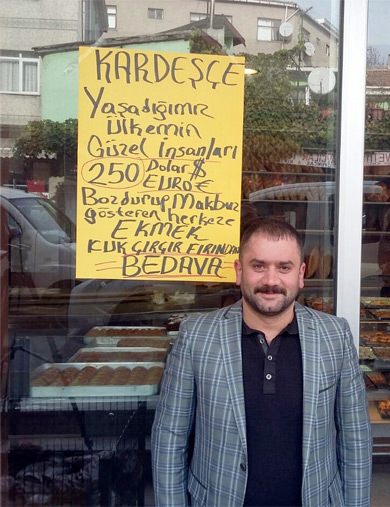 KARDEŞÇE
Yaşadığımız
Ülkemin
Güzel İnsanları
250 Dolar $
EURO €
Bozdurup Makbuz
gösteren herkeze
EKMEK
KUK GIRGIR FIRINDAN
BEDAVA